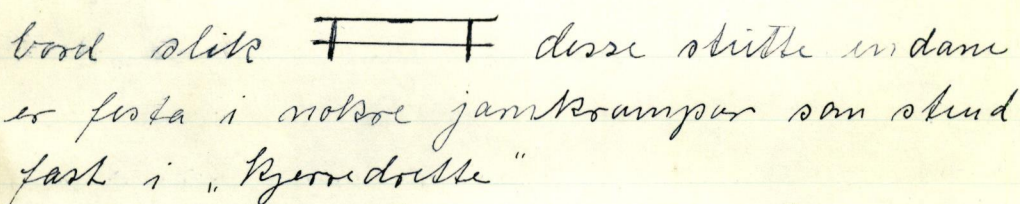 bord slik desse stutte endane
er festa i nokre jarnkrampar som stend
fast i „kjerredrette"